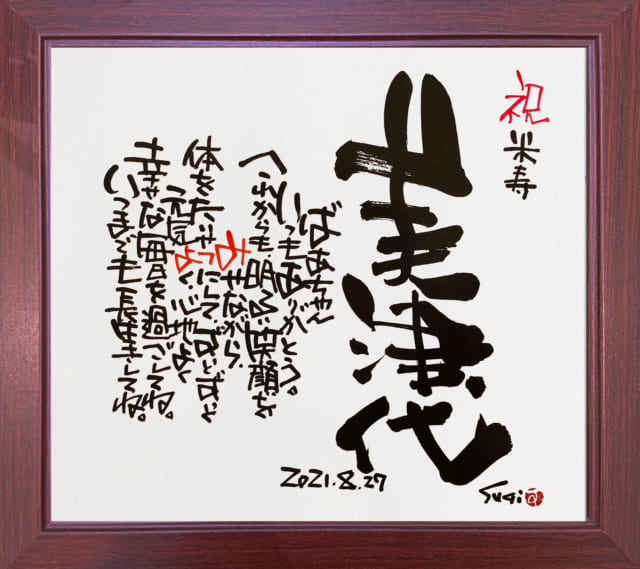 祝
米寿
美津代
ばあちゃん
いつもありがとう。
これからも、明るい笑顔を
みせながら、
体をたいせつにして、ずっとずっと
元気よく心地よく
幸せな毎日を過ごしてね。
いつまでも長生きしてね。
2021.8.27
Sugi